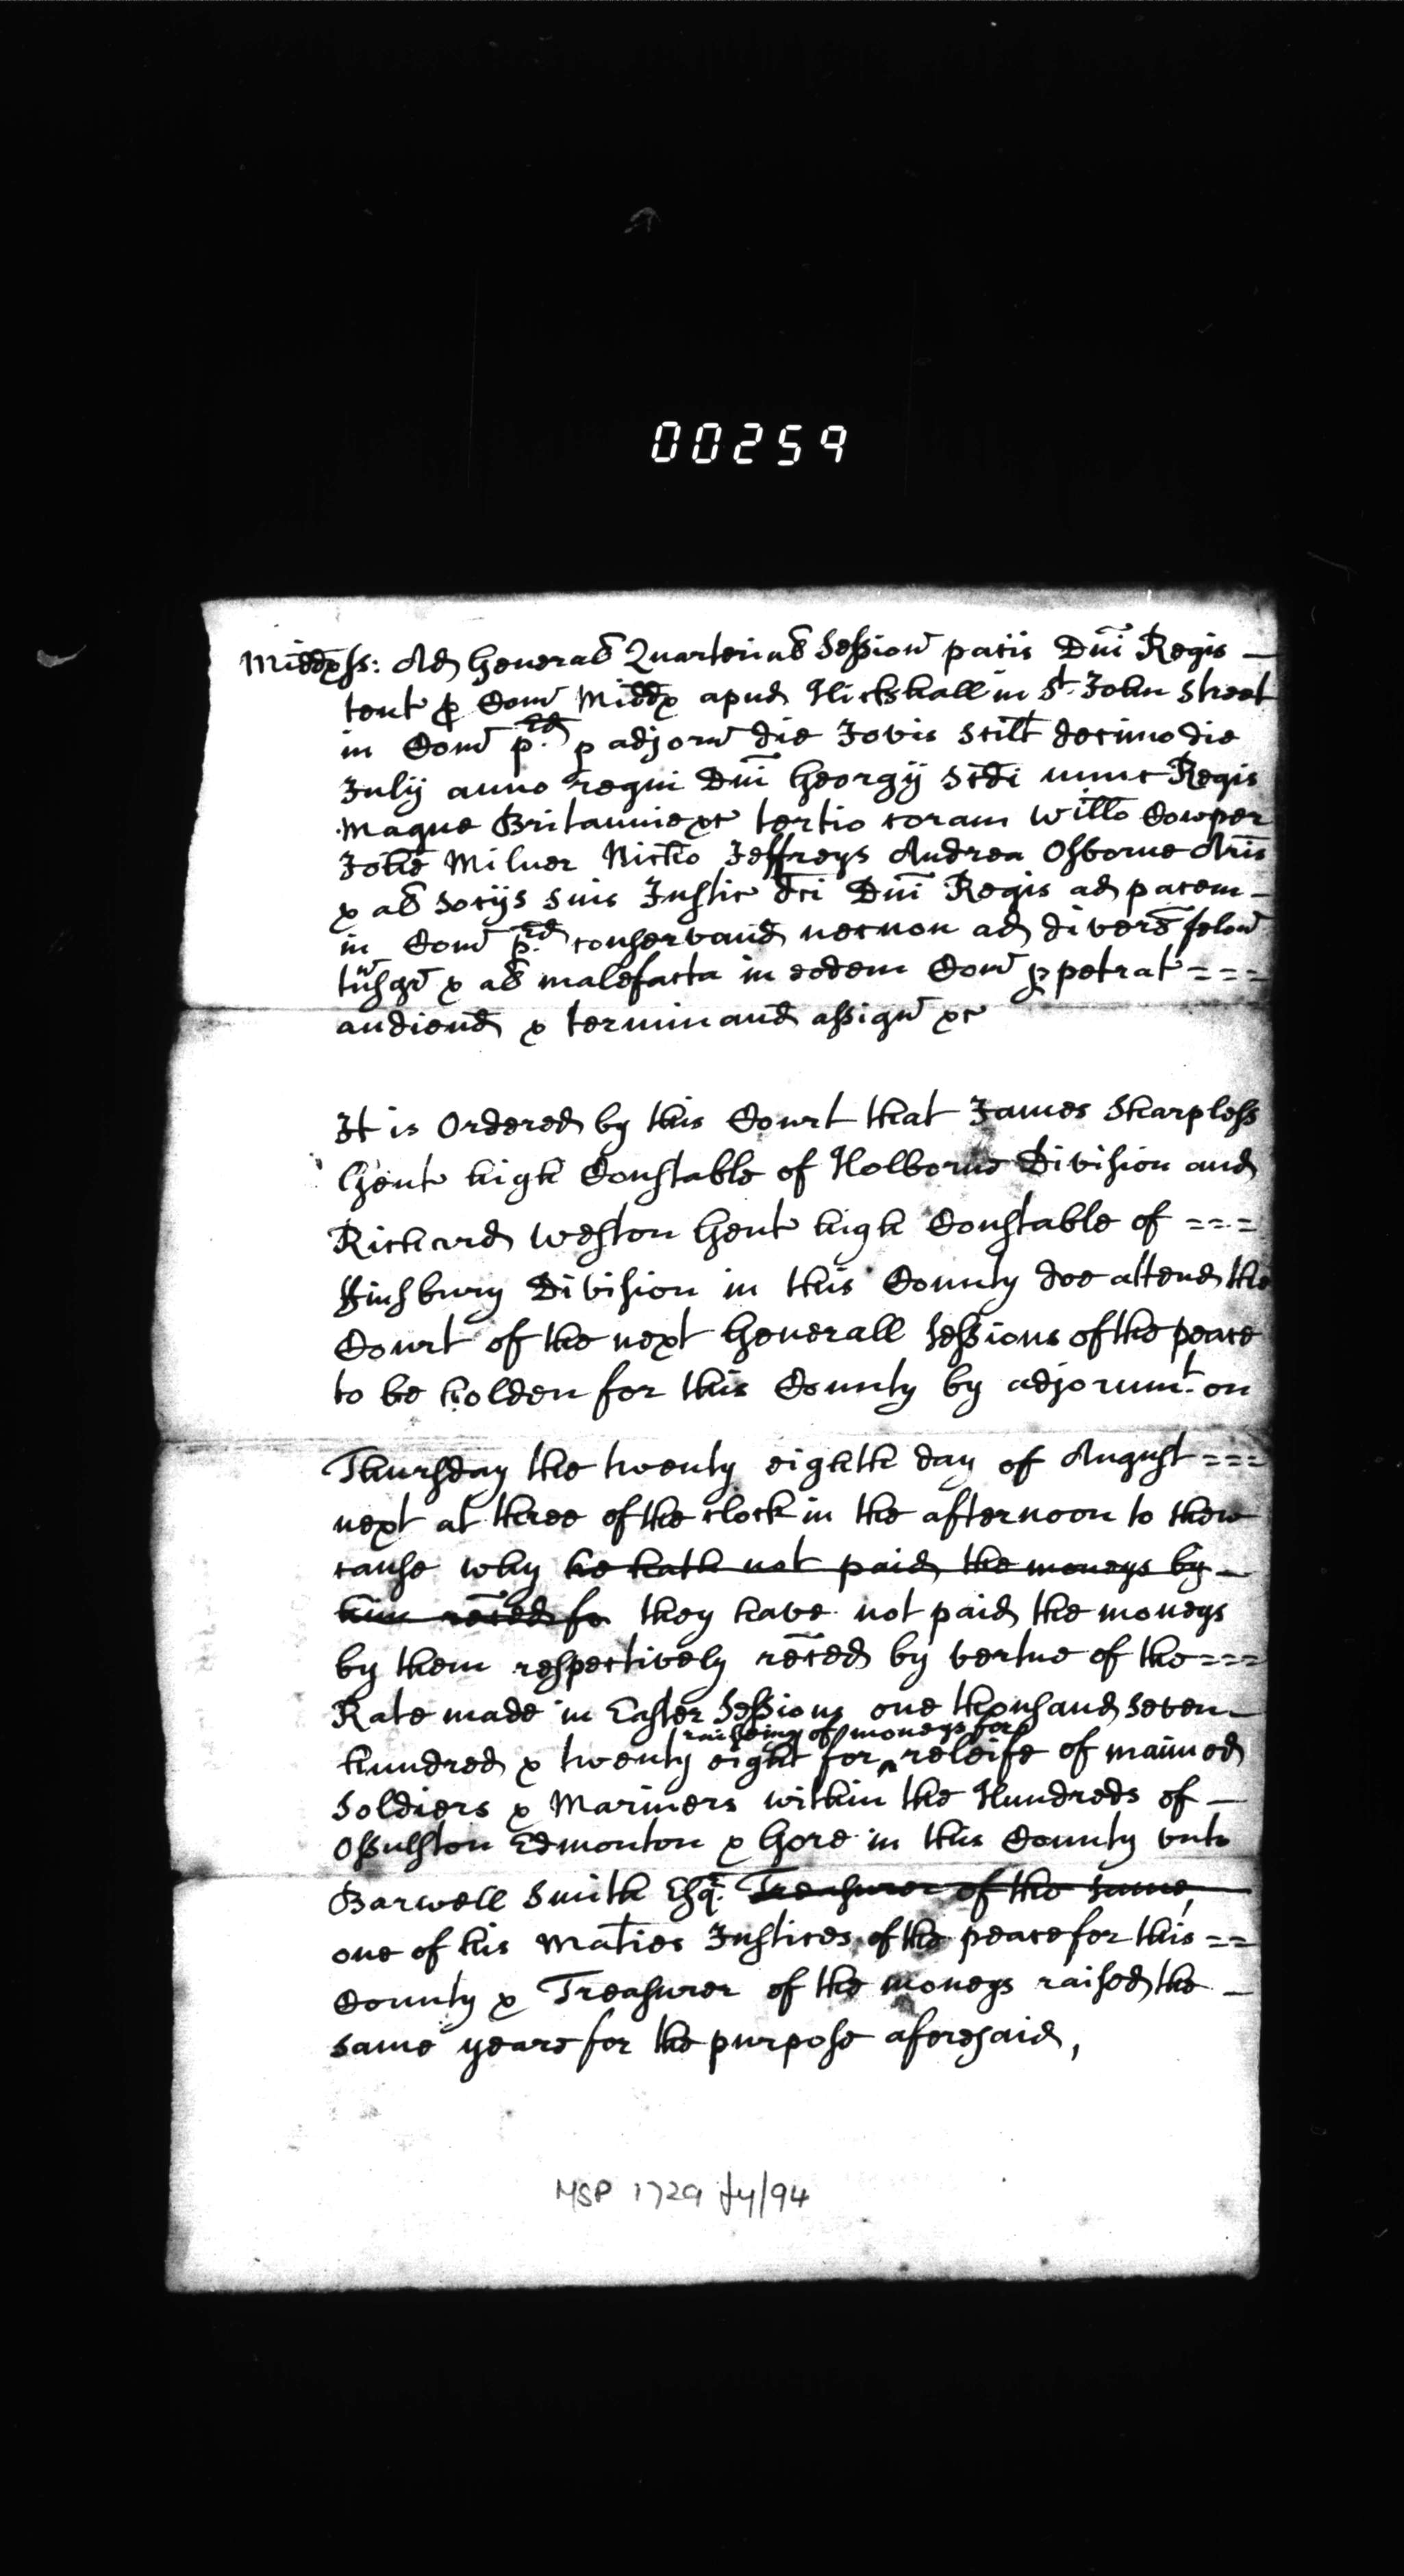 00259
Middx ss: Ad General Quarterial Session pacis Dni Regis —
tent p Com Middx apud Hickshall in St. John Street
in Com pred p adjorn die Jovis scilt decimo die
July anno regni Dni Georgij Scdi nunc Regis
Magne Britannie &c tertio coram Willo Cowper
Johe Milner Nicho Jeffreys Andrea Osborne Aris
& al Socijs suis Justic dci Dni Regis ad pacem —
in Com pred conservand necnon ad divers felon
tnsgr & al malefacta in eodem Com ppetrat = = =
audiend & terminand assign &c
It is Ordered by this Court that James Sharpless
Gent high Constable of Holborne Division and
Richard Weston Gent high Constable of = = =
ffinsbury Division in this County doe attend the
Court of the next Generall Sessions of the peace
to be holden for this County by adjornmt. on
Thursday the twenty eighth day of August = = =
next at three of the clock in the afternoon to shew
cause why he hath not paid the moneys by —
him reced fo they have not paid the moneys
by them respectively reced by vertue of the = = =
Rate made in Easter Sessions one thousand seven —
raiseing of moneys for
hundred & twenty eight for ^ releife of maimed
Soldiers & Mariners within the Hundreds of —
Ossulston Edmonton & Gore in this County unto
Barwell Smith Esqr. Treasurer of the same,
one of his Maties Justices of the peace for this = =
County & Treasurer of the moneys raised the —
same yeare for the purpose aforesaid,
MSP 1729 Jy/94